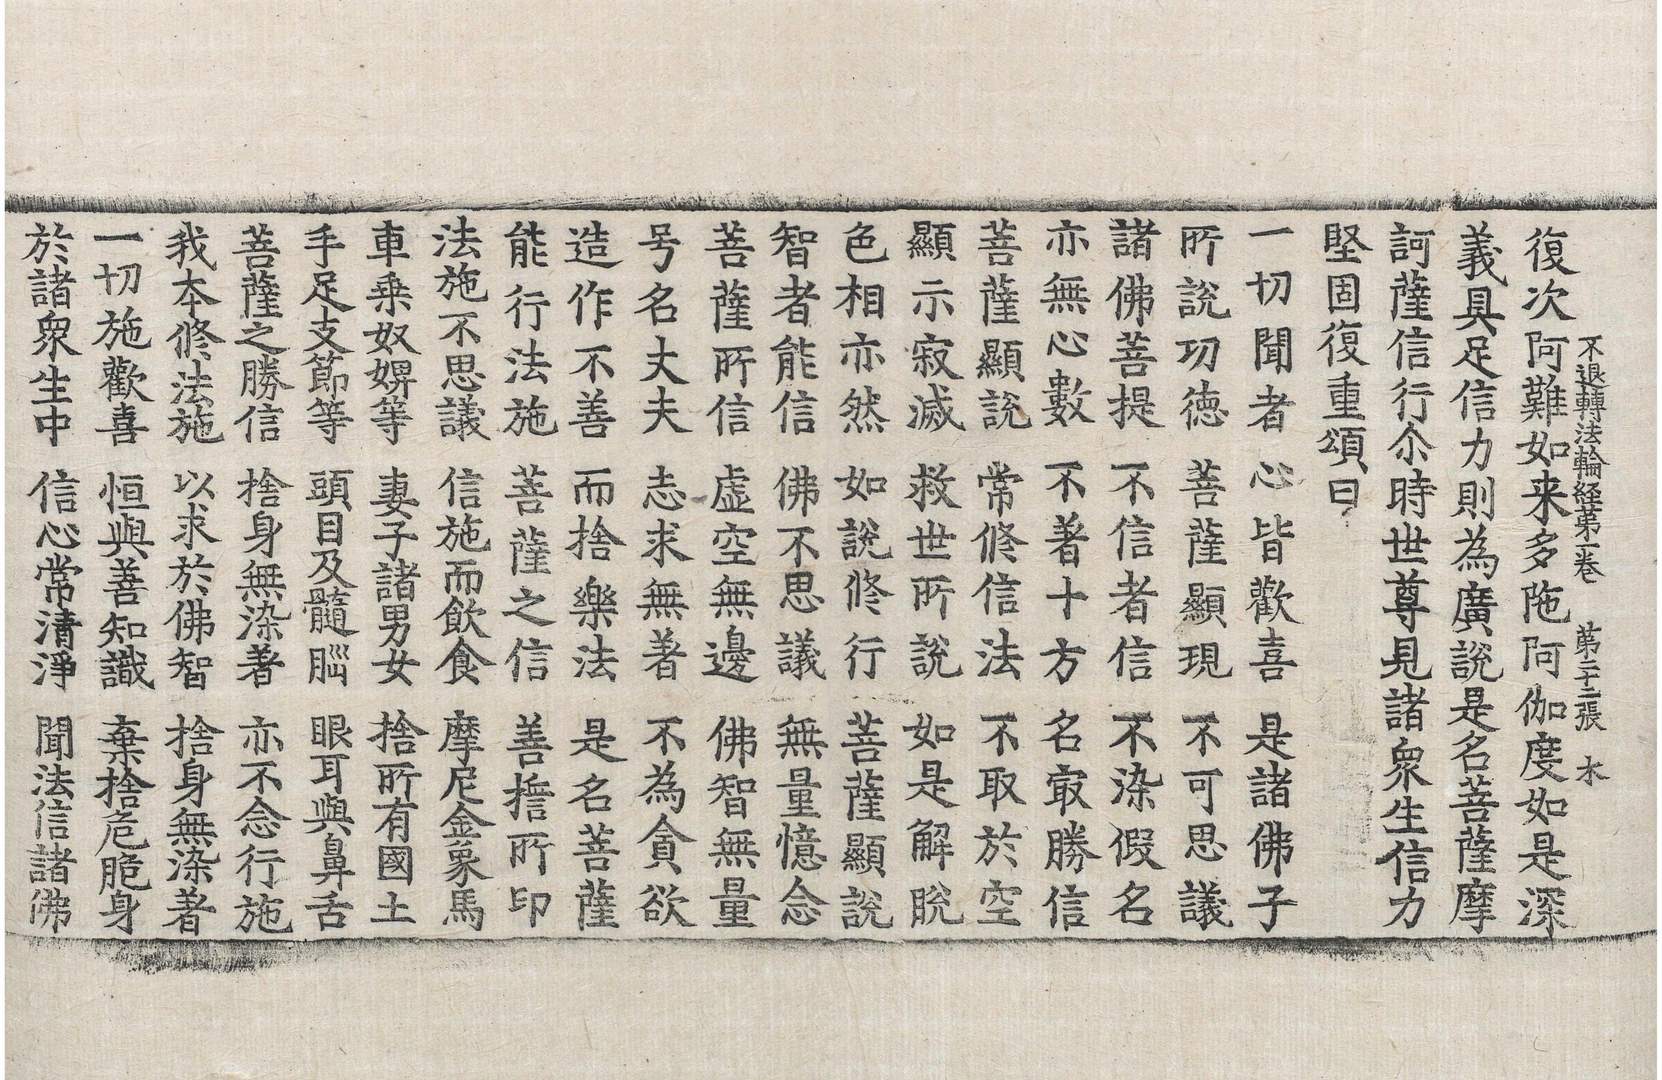 不退轉法輪経苐一卷　苐二十二張　木
復次阿難如来多陁阿伽度如是深
義具足信力則為廣說是名菩薩摩
訶薩信行尒時世尊見諸衆生信力
堅固復重頌曰
一切聞者心皆歡喜是諸佛子
所說功德菩薩顯現不可思議
諸佛菩提不信者信不染假名
亦無心數不著十方名㝡勝信
菩薩顯說常修信法不取於空
顯示寂滅救世所說如是解脫
色相亦然如說修行菩薩顯說
智者能信佛不思議無量憶念
菩薩所信虛空無邊佛智無量
号名丈夫志求無著不為貪欲
造作不善而捨樂法是名菩薩
能行法施菩薩之信善擔所印
法施不思議信施而飲食摩尼金象馬
車乗奴婢等妻子諸男女捨所有國土
手足支節等頭目及髓𦛁眼耳與鼻舌
菩薩之勝信捨身無染著亦不念行施
我本修法施以求於佛智捨身無染著
一切施歡喜恒與善知識棄捨危脆身
於諸衆生中信心常清淨聞法信諸佛